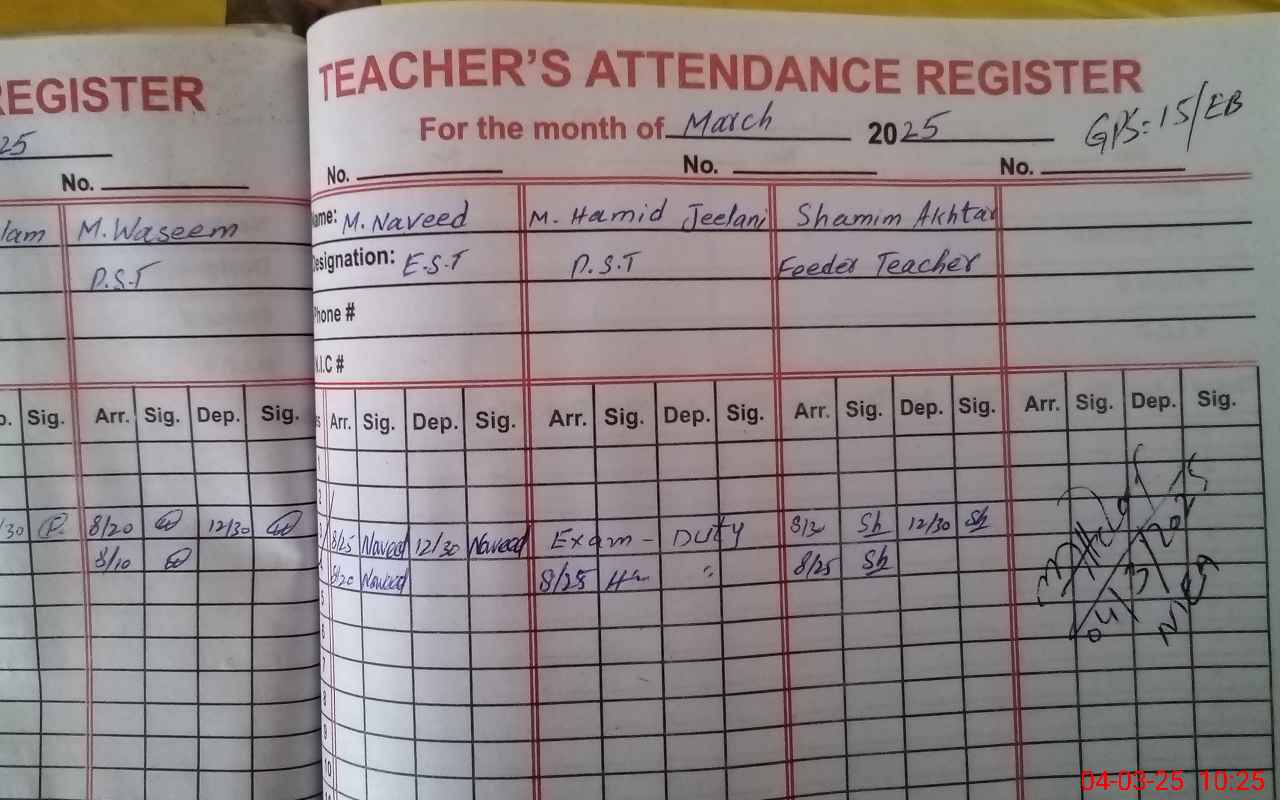 REGISTER
25
No.
lam M. Waseem
P.S.T
Sig. Arr. Sig. Dep. Sig.
/30 8/20 12/30
8/10
TEACHER'S ATTENDANCE REGISTER
For the month of March 2025
GPS: 15/EB
No. No. No.
ame: M. Naveed M. Hamid Jeelani Shamim Akhtar
esignation: E.S.T P.S.T Feeder Teacher
hone #
N.I.C #
Arr. Sig. Dep. Sig. Arr. Sig. Dep. Sig. Arr. Sig. Dep. Sig. Arr. Sig. Dep. Sig.
1
2
3 8/25 Naveed 12/30 Naveed Exam - Duty Sh 12/30 Sh
4 8/20 Naveed 8/25 8/25 Sh
5
6
7
8
9
10
04-03-25 10:25